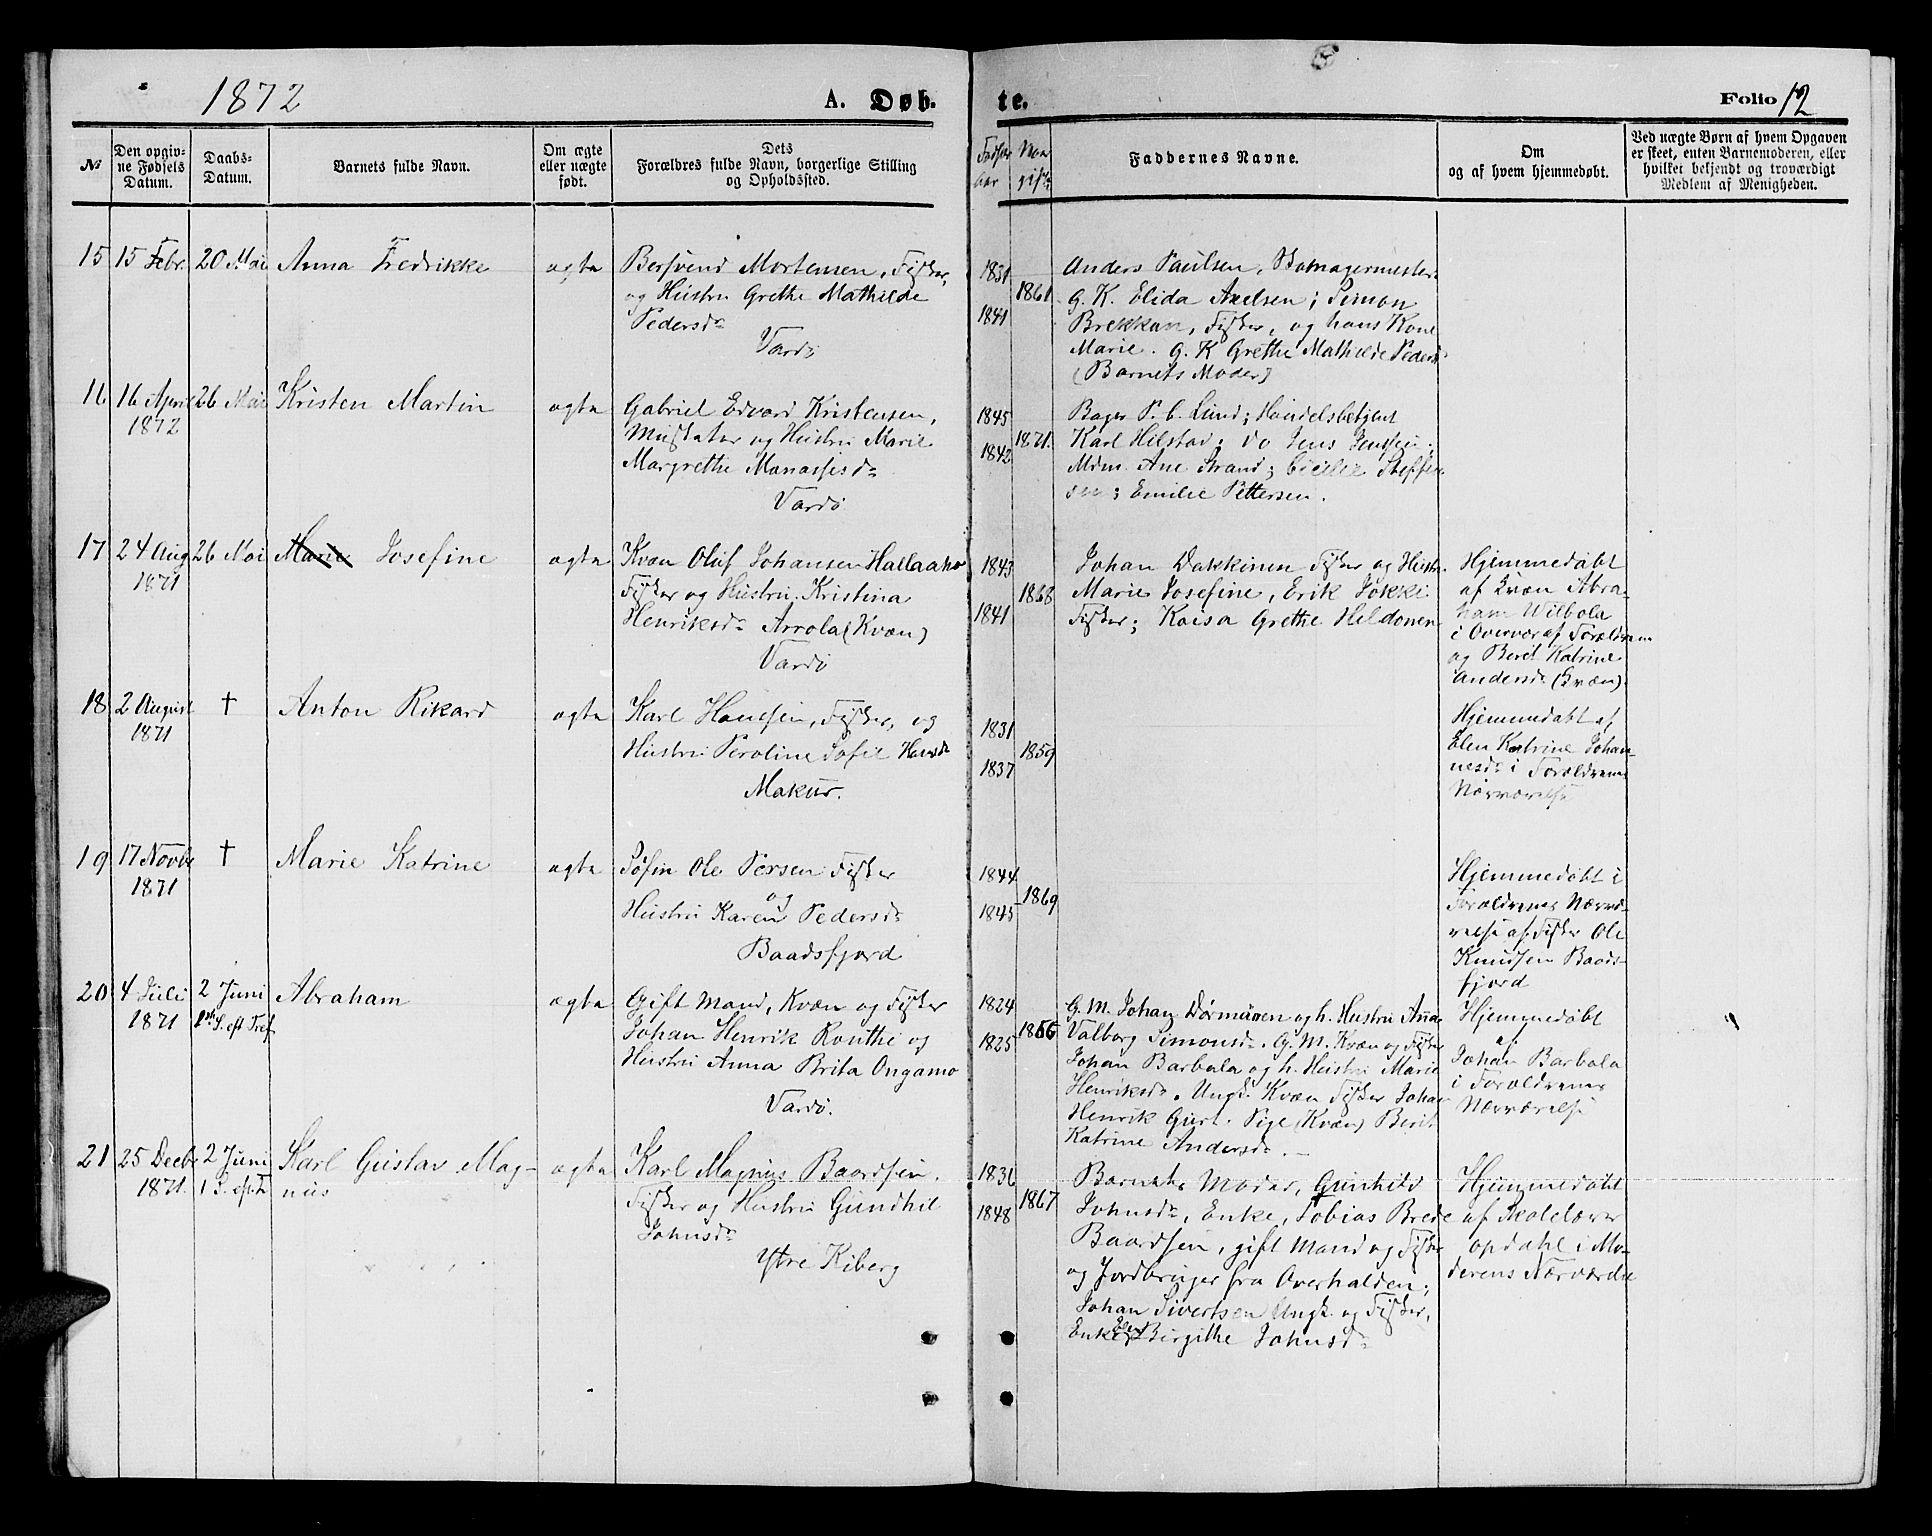 1872
A. Døb-
te.
Folio 12
№
Den opgiv-
ne Fødsels
Datum.
Daabs-
Datum.
Barnets fulde Navn.
Om ægte
eller uægte
født.
Dets
Forældres fulde Navn, borgerlige Stilling
og Opholdssted.
Naar
gifte
Faddernes Navne.
Om
og af hvem hjemmedøbt.
Ved uægte Børn af hvem Opgaven
er skeet, enten Barnemoderen, eller
hvilket bekjendt og troværdigt
Medlem af Menigheden.
15
15 Febr.
20 Mai
Anna Fredrikke
ægte
Bersvend Mortensen, Fisker,
og Hustru Grethe Mathilde
Pedersdr
Vardø
1831
1841
1861
Anders Paulsen,
G. K. Elida Axelsen; Simon
Brekkan, Fisker, og hans Kone
Marie. G. K Grethe Mathilde Peders
(Barnets Moder)
16
16 April
1872
26 Mai
Kristen Martin
ægte
Gabriel Edvard Kristensen,
og Hustru Marie
Margrethe Manassesdr
Vardø
1845
1842
1871.
Bager P. C. Lund; Handelsbetjent
Karl Hilstad; do Jens Jenssen;
Mdm. Ane Strand; Cecilie Steffen-
sen; Emilie Pettersen.
17
24 Aug
1871
26 Mai
Marie Josefine
ægte
Kvæn Oluf Johansen Hallaaho
Fisker og Hustru Kristina
Henriksdr Arrola (Kvæn)
Vardø
1843
1841
1868
Johan Dakkinen Fisker og Hustr.
Marie Josefine, Erik Jokki
Fisker; Kaisa Grethe Heldonen
Hjemmedøbt
af Kvæn Abra-
ham Wilbola
i Overvær af Forældrene
og Berit Katrine
Andersdr (Kvæn).
18
2 August
1871
†
Anton Rikard
ægte
Karl Hansen, Fisker, og
Hustru Peroline Sofie Hansdr
Makur.
1831
1837
1859
Hjemmedøbt af
Elen Katrine Johan-
nesdr i Forældrenes
Nærværelse
19
17 Novbr
1871
†
Marie Katrine
ægte
Søfin Ole Persen Fisker
og
Hustru Karen Pedersdr
Baadsfjord
1844
1845
1869
Hjemmedøbt i
Forældrenes Nærvæ-
relse af Fisker Ole
Knudsen Baads-
fjord
20
4 Juli
1871
2 Juni
1ste S. eft Tref.
Abraham
ægte
Gift Mand, Kvæn og Fisker
Johan Henrik Routhi og
Hustru Anna Brita Ongamo
Vardø.
1824
1825
1856
G. M. Johan Dørmänen og h. Hustru Anna
Valborg Simonsdr. G. M. Kvæn og Fisker
Johan Barbala og h. Hustru Marie
Henriksdr. Ungk. Kvæn Fisker Johan
Henrik Gjert. Pige (Kvæn) Berit
Katrine Andersdr. —
Hjemmedøbt
af
Johan Barbala
i Forældrenes
Nærværelse
21
25 Decbr
1871.
2 Juni
1 S. eft T
Karl Gustav Mag-
nus
ægte
Karl Magnus Baardsen.
Fisker og Hustru Gundhil
Johnsdr
Ytre Kiberg
1836
1848
1867
Barnets Moder, Gunhild
Johnsdr, Enke, Tobias Brede
Baardsen, gift Mand og Fisker
og Jordbruger fra Overhalden;
Johan Sivertsen Ungk. og Fisker,
Enke Elen Birgithe Johnsdr
Hjemmedøbt
af Skolelærer
Opdahl i Mo-
derens Nærværelse